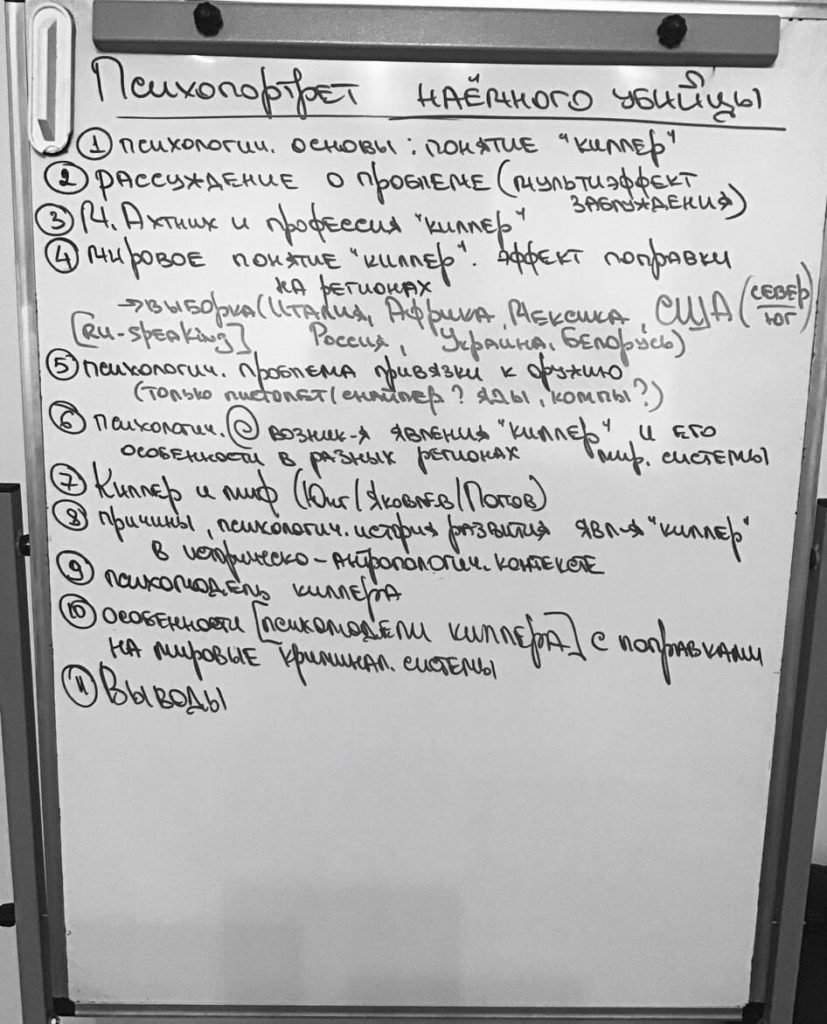 Психопортрет наёмного убийцы
① психологич. основы: понятие "киллер"
② рассуждение о проблеме (мультиэффект
заблуждения)
③ М. Ахтник и профессия "киллер"
④ мировое понятие "киллер". эффект поправки
на регионах
→ выборка (Италия, Африка, Мексика, США (север/юг)
[Ru-speaking] Россия, Украина, Белорусь)
⑤ психологич. проблема привязки к оружию
(только пистолет/снайпер? яды, компы?)
⑥ психологич. возник-я явления "киллер" и его
особенности в разных регионах мир. системы
⑦ Киллер и миф (Юнг/Яковлев/Попов)
⑧ причины, психологич. история развития явл-я "киллер"
в историческо-антропологич. контексте
⑨ психомодель киллера
⑩ особенности [психомодели киллера] с поправками
на мировые криминал. системы
⑪ Выводы